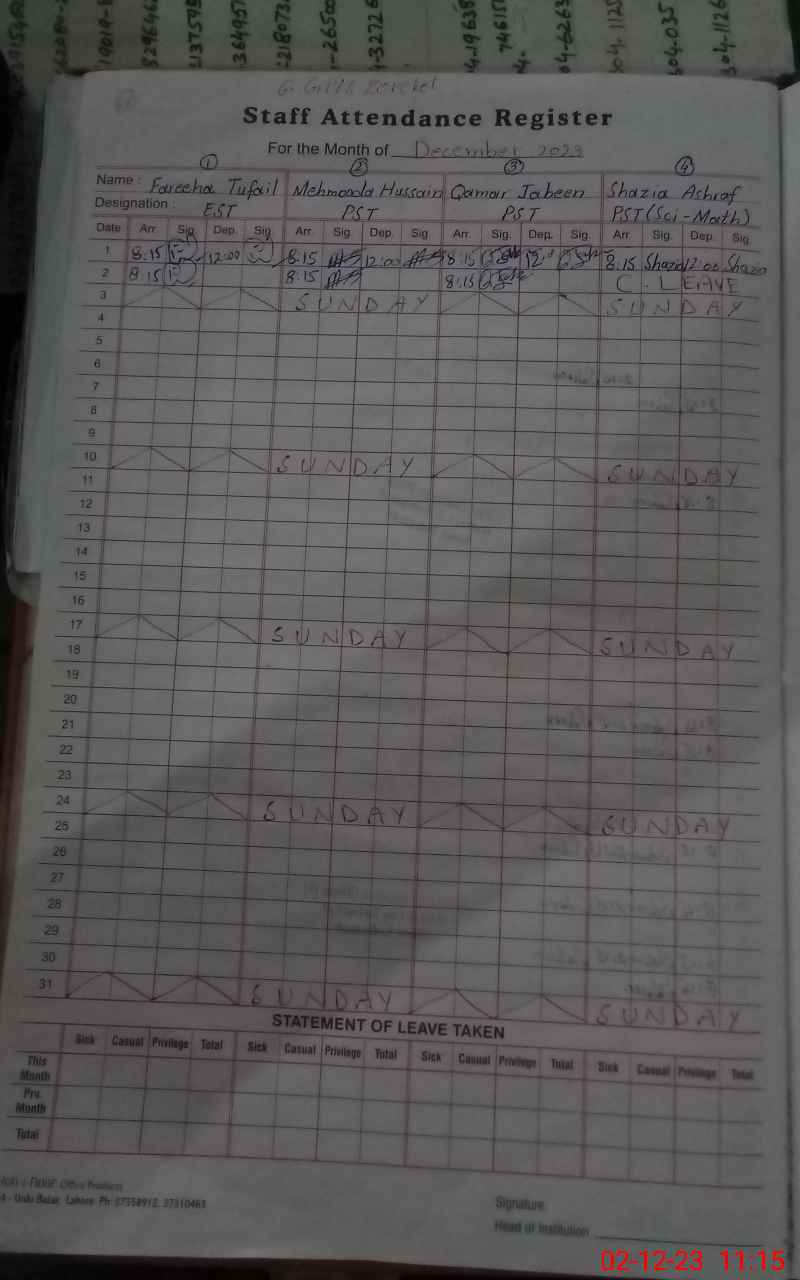 Staff Attendance Register
For the Month of December 2023
1 2 3 4
Name : Fareeha Tufail Mehmooda Hussain Qamar Jabeen Shazia Ashraf
Designation : EST PST PST PST (Sci-Math)
Date Arr. Sig. Dep. Sig. Arr. Sig. Dep. Sig. Arr. Sig. Dep. Sig. Arr. Sig. Dep. Sig.
1 8:15 12:00 8:15 12:00 8:15 8:15 Shazia 12:00 Shazia
2 8:15 8:15 8:15 C. LEAVE
3 SUNDAY SUNDAY
4
5
6
7
8
9
10 SUNDAY SUNDAY
11
12
13
14
15
16
17 SUNDAY SUNDAY
18
19
20
21
22
23
24 SUNDAY SUNDAY
25
26
27
28
29
30
31 SUNDAY SUNDAY
STATEMENT OF LEAVE TAKEN
Sick Casual Privilege Total Sick Casual Privilege Total Sick Casual Privilege Total Sick Casual Privilege Total
This Month
Prv. Month
Total
Office Products
Urdu Bazar, Lahore. Ph: 37358912, 37310461
Signature
Head of Institution
02-12-23 11:15